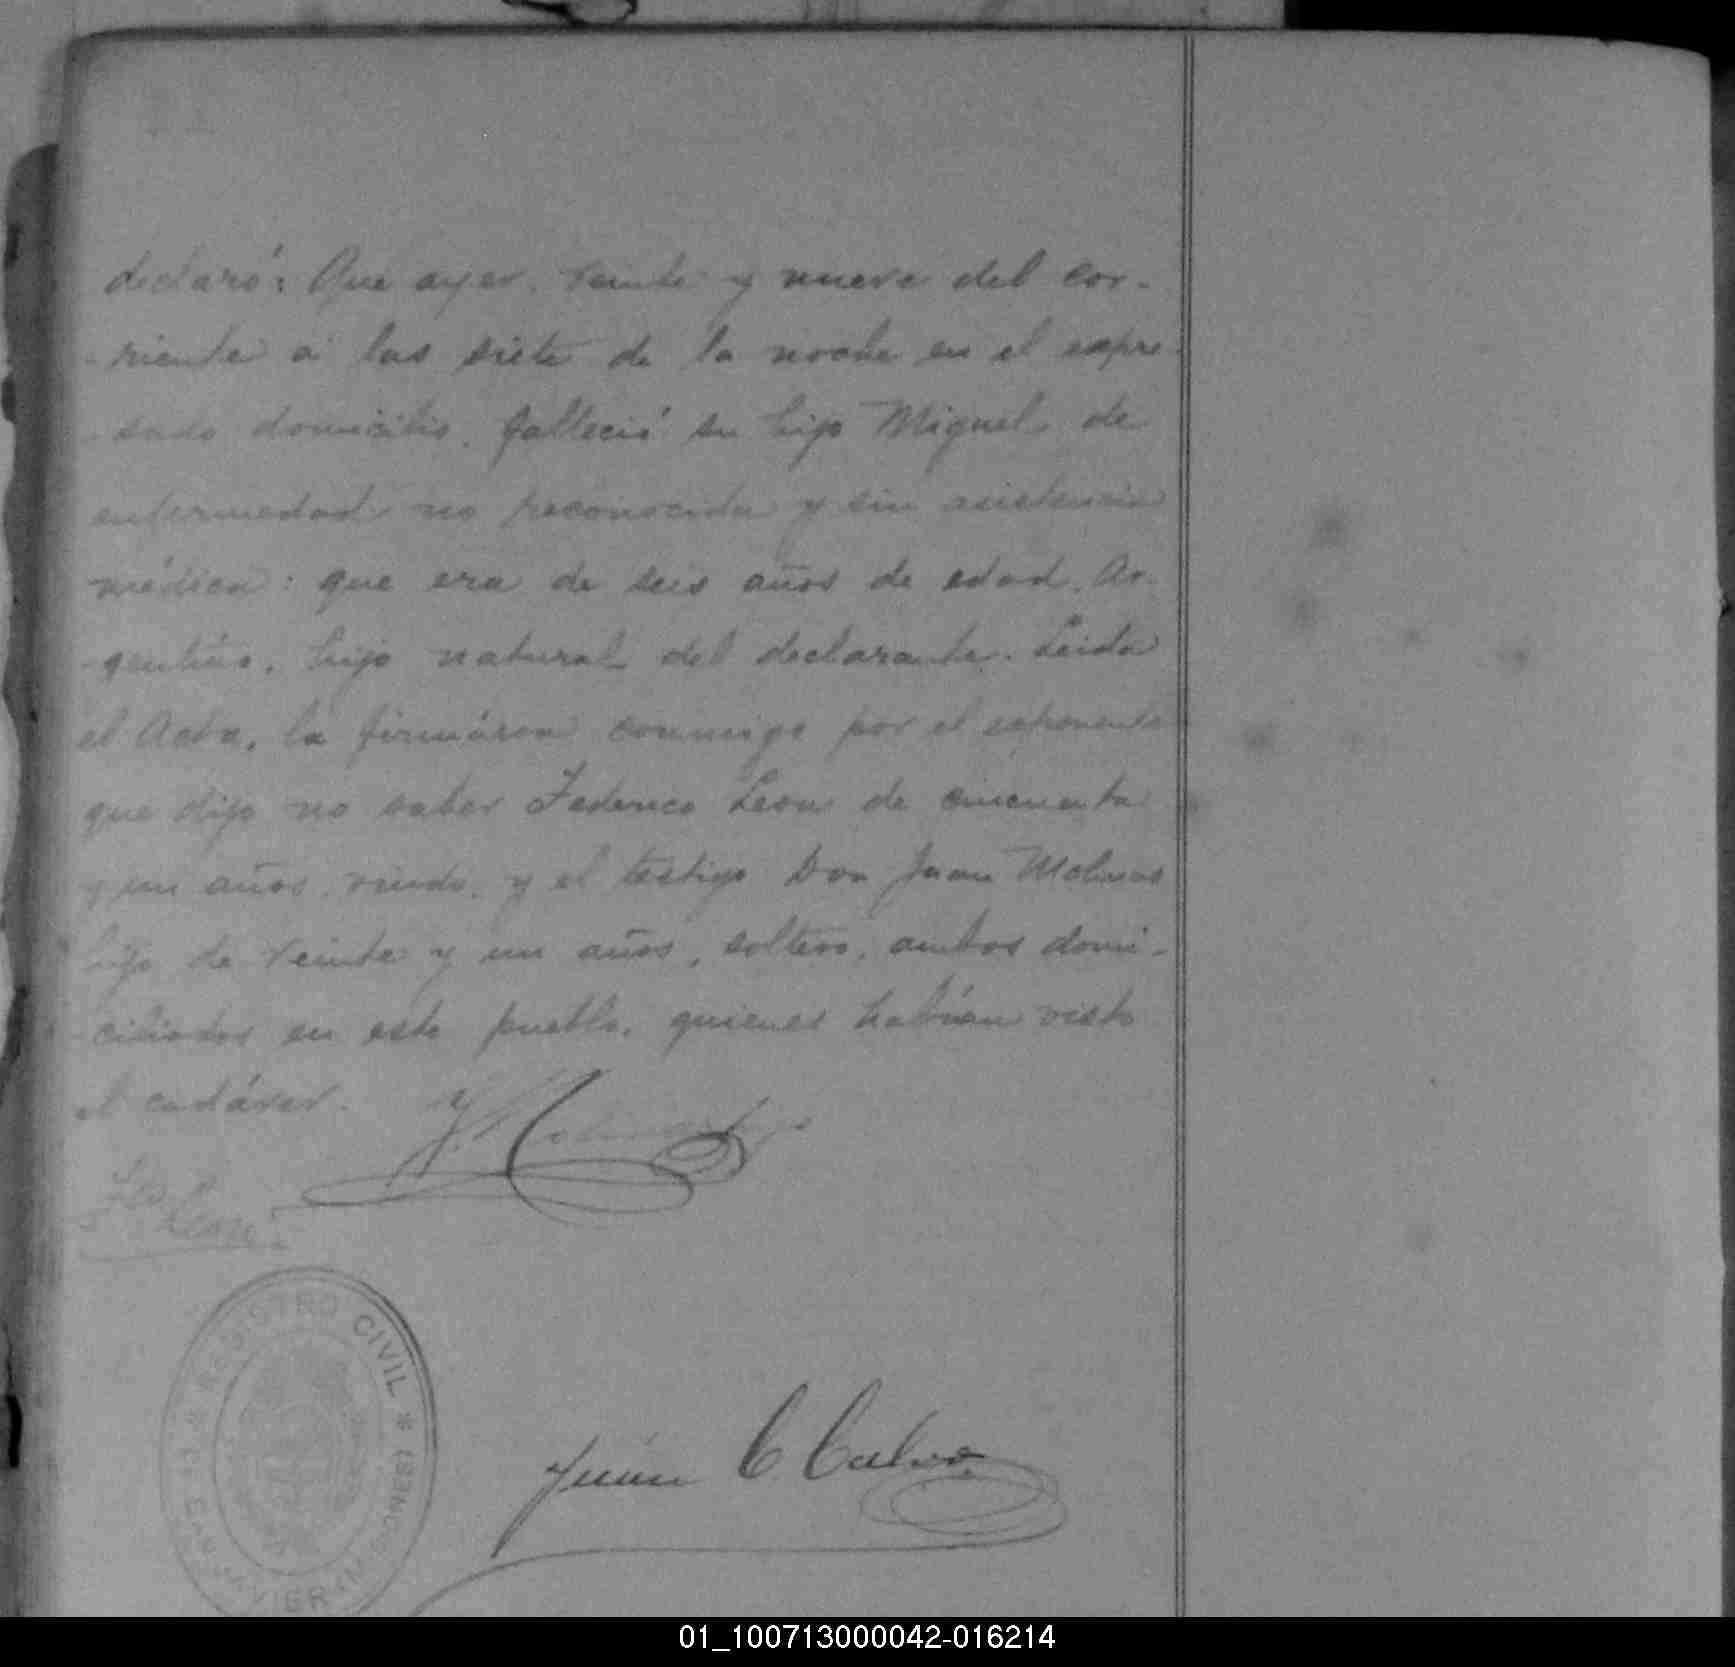 declaró: Que ayer, veinte y nueve del cor-
-riente á las siete de la noche en el expre-
-sado domicilio, falleció su hijo Miguel de
enfermedad no reconocida y sin asistencia
médica: que era de seis años de edad, Ar-
-gentino, hijo natural del declarante. Leida
el Acta, la firmáron conmigo por el exponente
que dijo no saber Federico Leon de cincuenta
y un años, viudo, y el testigo Don Juan Molinas
hijo de veinte y un años, soltero, ambos domi-
-ciliados en este pueblo, quienes habían visto
el cadáver.
Leon
REGISTRO CIVIL * (MISIONES) SAN JAVIER *
Juan C Calvo
01_100713000042-016214